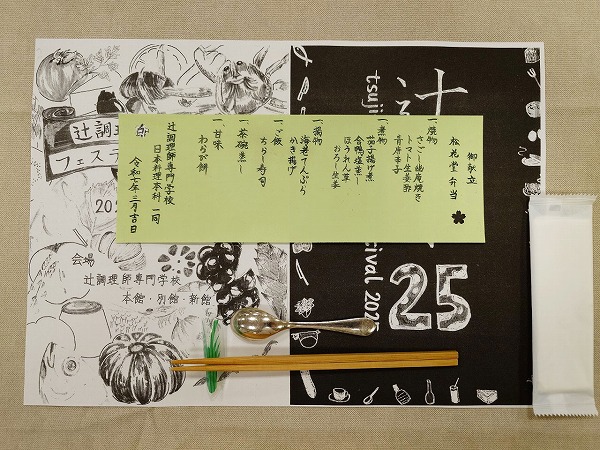 御献立
松花堂弁当
一、焼物
さごし幽庵焼き
トマト生姜酢
青唐辛子
一、煮物
茄子揚げ煮
合鴨塩蒸し
ほうれん草
おろし生姜
一、揚物
海老天ぷら
かき揚げ
一、ご飯
ちらし寿司
一、茶碗蒸し
一、甘味
わらび餅
辻調理師専門学校
日本料理本科一同
令和七年三月吉日
辻調理
フェステ
202
会場
辻調理師専門学校
本館・別館・新館
辻
tsuji
ival 202
25